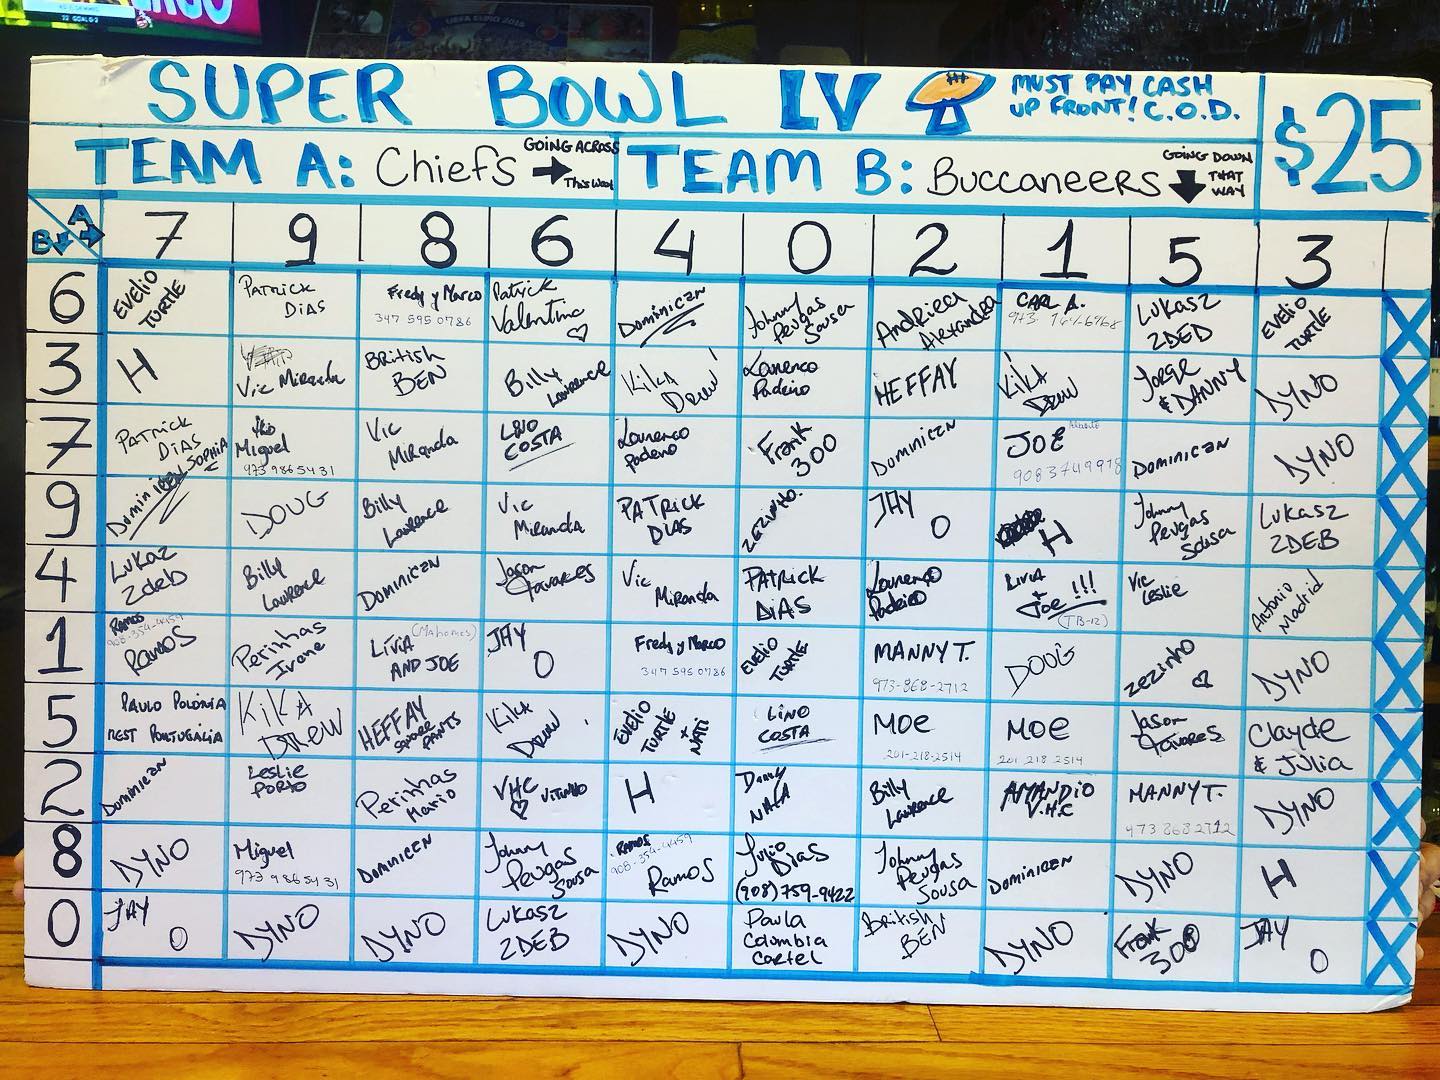 22 GOALS-2
UEFA EURO 2016
SUPER BOWL LV
MUST PAY CASH
UP FRONT! C.O.D.
$25
TEAM A: Chiefs
GOING ACROSS
This Way
TEAM B: Buccaneers
GOING DOWN
THAT
WAY
A
B
7 9 8 6 4 0 2 1 5 3
6
EVELIO
TURTLE
PATRICK
DIAS
Fredy y Marco
347 595 0786
Patrick
Valentina
Dominican
Johnny
Peugas
Sousa
Andriea
Alexandra
CARL A.
LUKASZ
ZDEB
EVELIO
TURTLE
3
H
Vic Miranda
BRITISH
BEN
Billy
Lawrence
KiKA
DREW
Lourenco
Padeiro
HEFFAY
KiKA
DREW
JORGE
& DANNY
DYNO
7
PATRICK
DIAS
SOPHIA
Miguel
973 986 5431
Vic
Miranda
LINO
COSTA
Lourenco
Padeiro
Frank
300
Dominican
JOE
908 374 9978
Dominican
DYNO
9
Dominican
DOUG
Billy
Lawrence
Vic
Miranda
PATRICK
DIAS
ZEZINHO
JAY
0
H
Johnny
Peugas
Sousa
LUKASZ
ZDEB
4
LUKaZ
Zdeb
Billy
Lawrence
Dominican
Jason
Tavares
Vic
Miranda
PATRICK
DIAS
Lourenco
Padeiro
LIVIA
+
Joe !!!
(TB-12)
Vic
Leslie
Antonio
Madrid
1
RAMOS
908-354-4459
RAMOS
Perinhas
Irone
LIVIA (Mahomes)
AND JOE
JAY
0
Fredy y Marco
347 595 0786
EVELIO
TURTLE
MANNY T.
973-868-2712
DOUG
Zezinho
DYNO
5
PAULO POLONIA
REST PORTUGALIA
KiKA
DREW
HEFFAY
SQUARE
PANTS
KiKA
DREW
EVELIO
TURTLE
+ NATI
LINO
COSTA
MOE
201-218-2514
MOE
201 218 2514
Jason
Tavares
Clayde
& Julia
2
Dominican
LESLIE
PORTO
Perinhas
Mario
VHC
VITINHO
H
Danny
NALA
Billy
Lawrence
AMANDIO
V.H.C
MANNY T.
973 868 2712
DYNO
8
DYNO
Miguel
973 986 5431
Dominican
Johnny
Peugas
Sousa
RAMOS
908-354-4459
RAMOS
Julio
Dias
(908) 759-9422
Johnny
Peugas
Sousa
Dominican
DYNO
H
0
JAY
0
DYNO
DYNO
LUKASZ
ZDEB
DYNO
Paula
Columbia
Cartel
BRITISH
BEN
DYNO
Frank
300
JAY
0